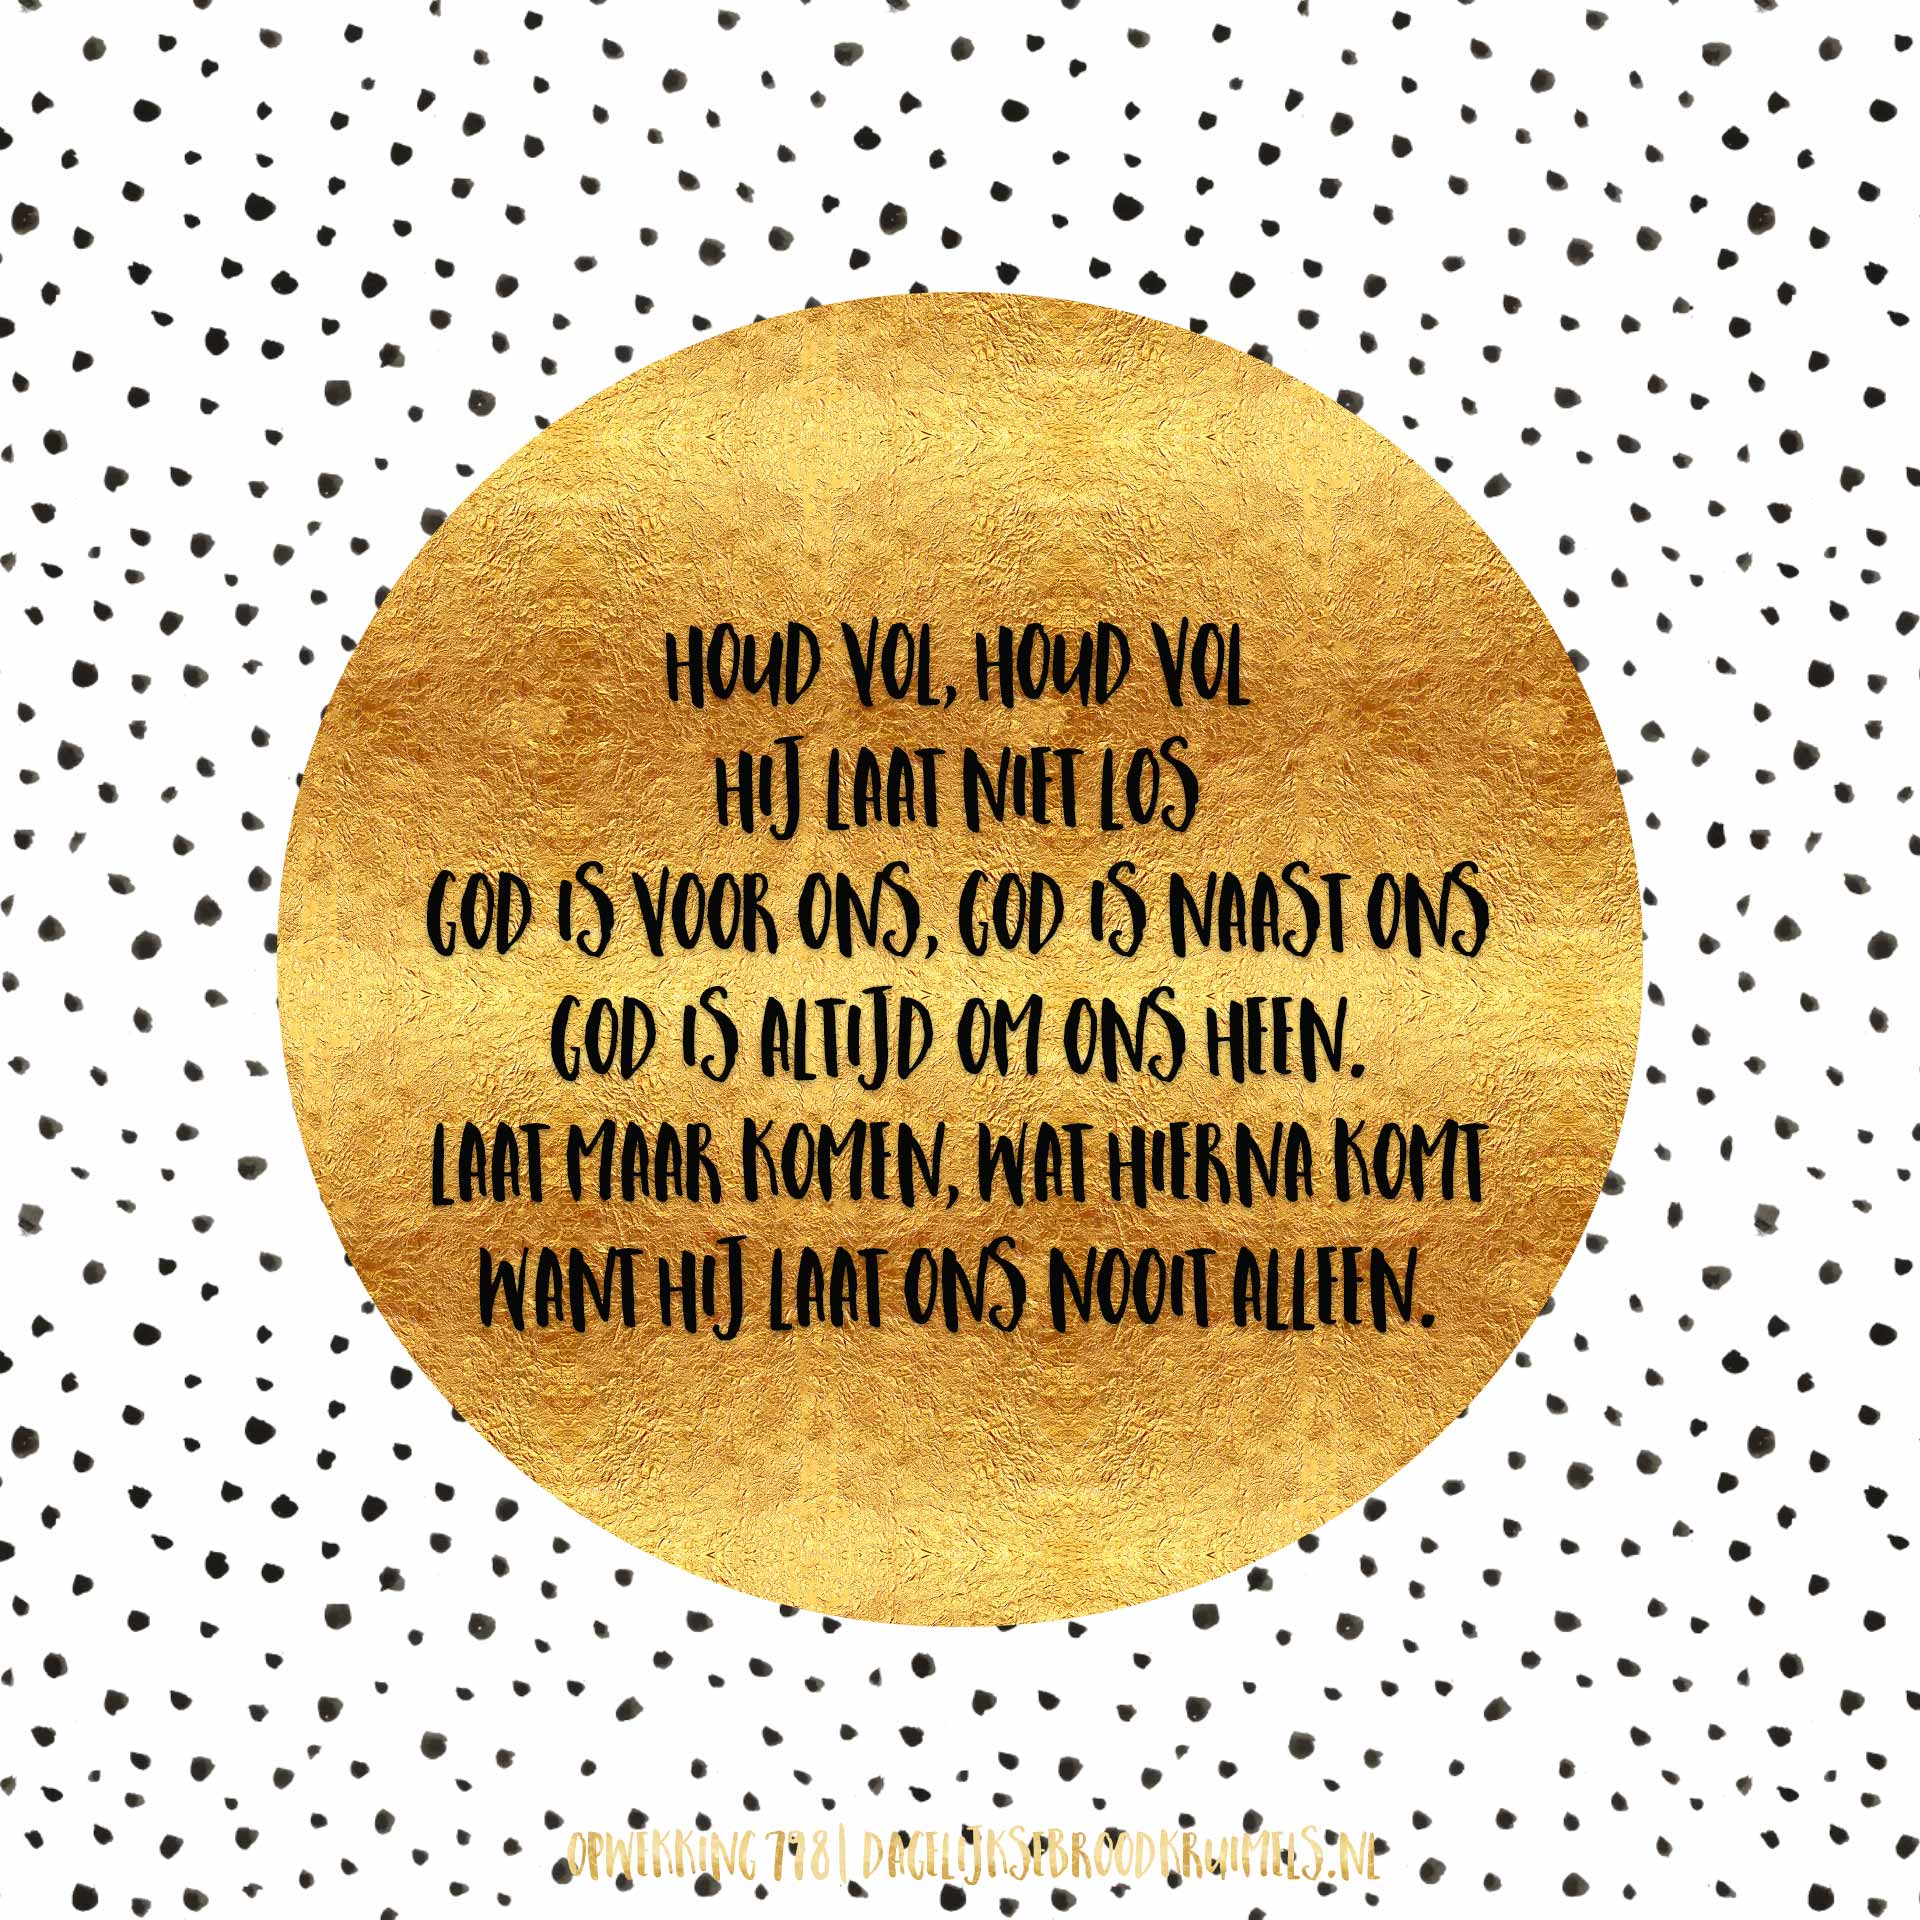 HOUD VOL, HOUD VOL
HIJ LAAT NIET LOS
GOD IS VOOR ONS, GOD IS NAAST ONS
GOD IS ALTIJD OM ONS HEEN.
LAAT MAAR KOMEN, WAT HIERNA KOMT
WANT HIJ LAAT ONS NOOIT ALLEEN.
OPWEKKING 798 | DAGELIJKSEBROODKRUIMELS.NL